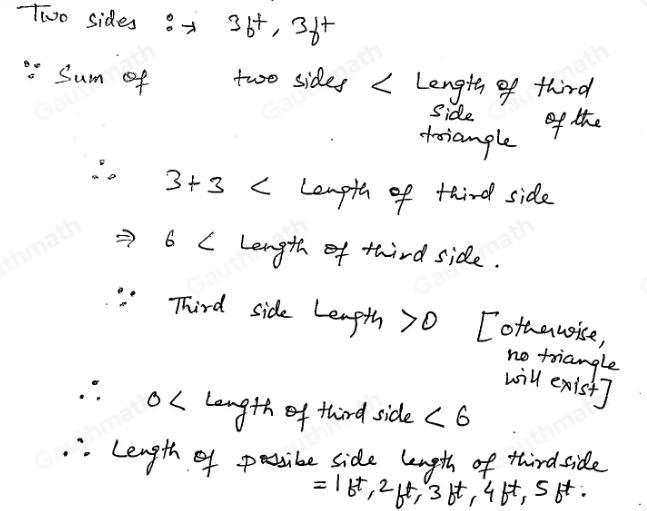 Two sides :→ 3ft, 3ft
∵ Sum of two sides < Length of third
side of the
triangle
∴ 3+3 < Length of third side
⇒ 6 < Length of third side.
∵ Third side Length >0 [otherwise,
no triangle
will exist]
∴ 0< Length of third side < 6
∴ Length of possibe side length of third side
= 1ft, 2ft, 3ft, 4ft, 5ft.